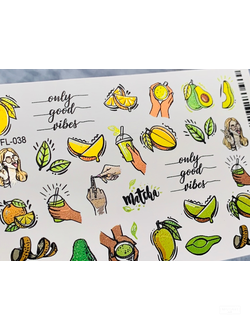 only
good
vibes
FL-038
only
good
vibes
Matcha